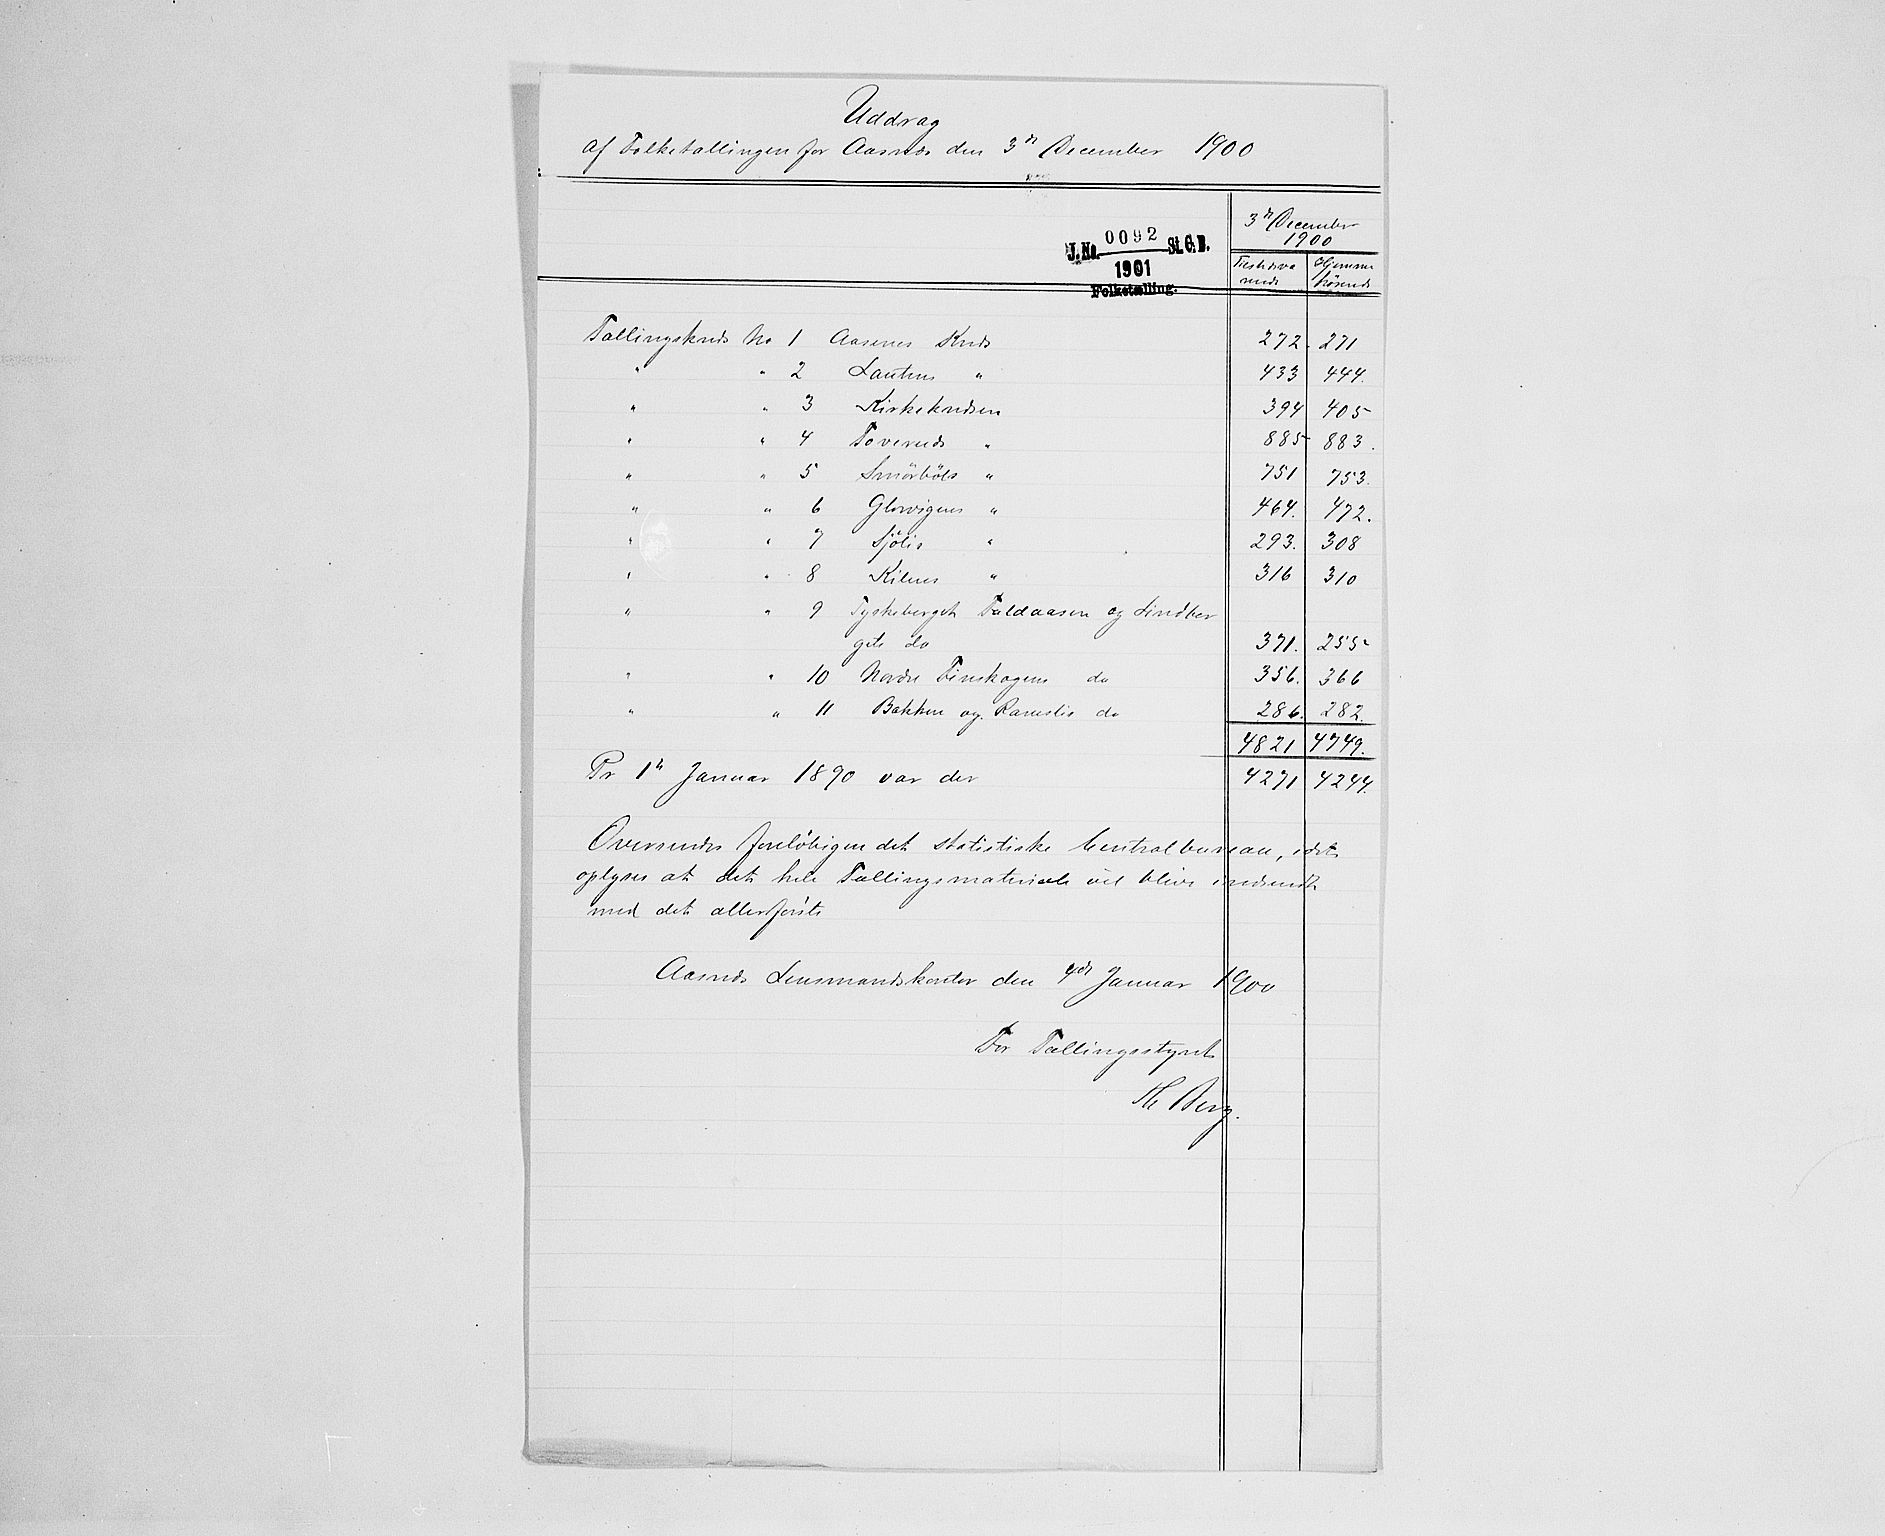 Uddrag
af Folketællingen for Aasnæs den 3de December 1900
3de December
1900
J. No. 0092 St. C. B.
1901
Folketælling.
Tilstedeværende
Hjemmehørende
Tællingskreds No 1 Aasenes Kreds 272. 271
" " 2 Lautens " 433 444.
" " 3 Kirkekredsen 394 405
" " 4 Toveruds " 885 883.
" " 5 Smörböls " 751 753.
" " 6 Glorvigens " 464. 472.
" " 7 Sjölis " 293. 308
" " 8 Kilens " 316 310
" " 9 Tyskeberget Faldaasen og Lindber
gets do 371. 255
" " 10 Nordre Finskogens do 356. 366
" " 11 Bakken og do 286. 282.
4821 4749.
Pr 1ste Januar 1890 var der 4271 4244.
Oversendes foreløbigen det statistiske Centralbureau, idet
oplyses at det hele Tællingsmateriale vil blive indsendt
med det allerførste
Aasnes Lensmandskontor den Januar 1900
For Tællingsstyret
Berg.